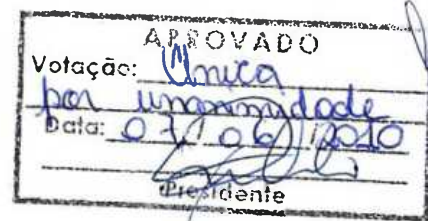 APROVADO
Votação: Única
por unanimidade
Data: 07/06/2010
Presidente